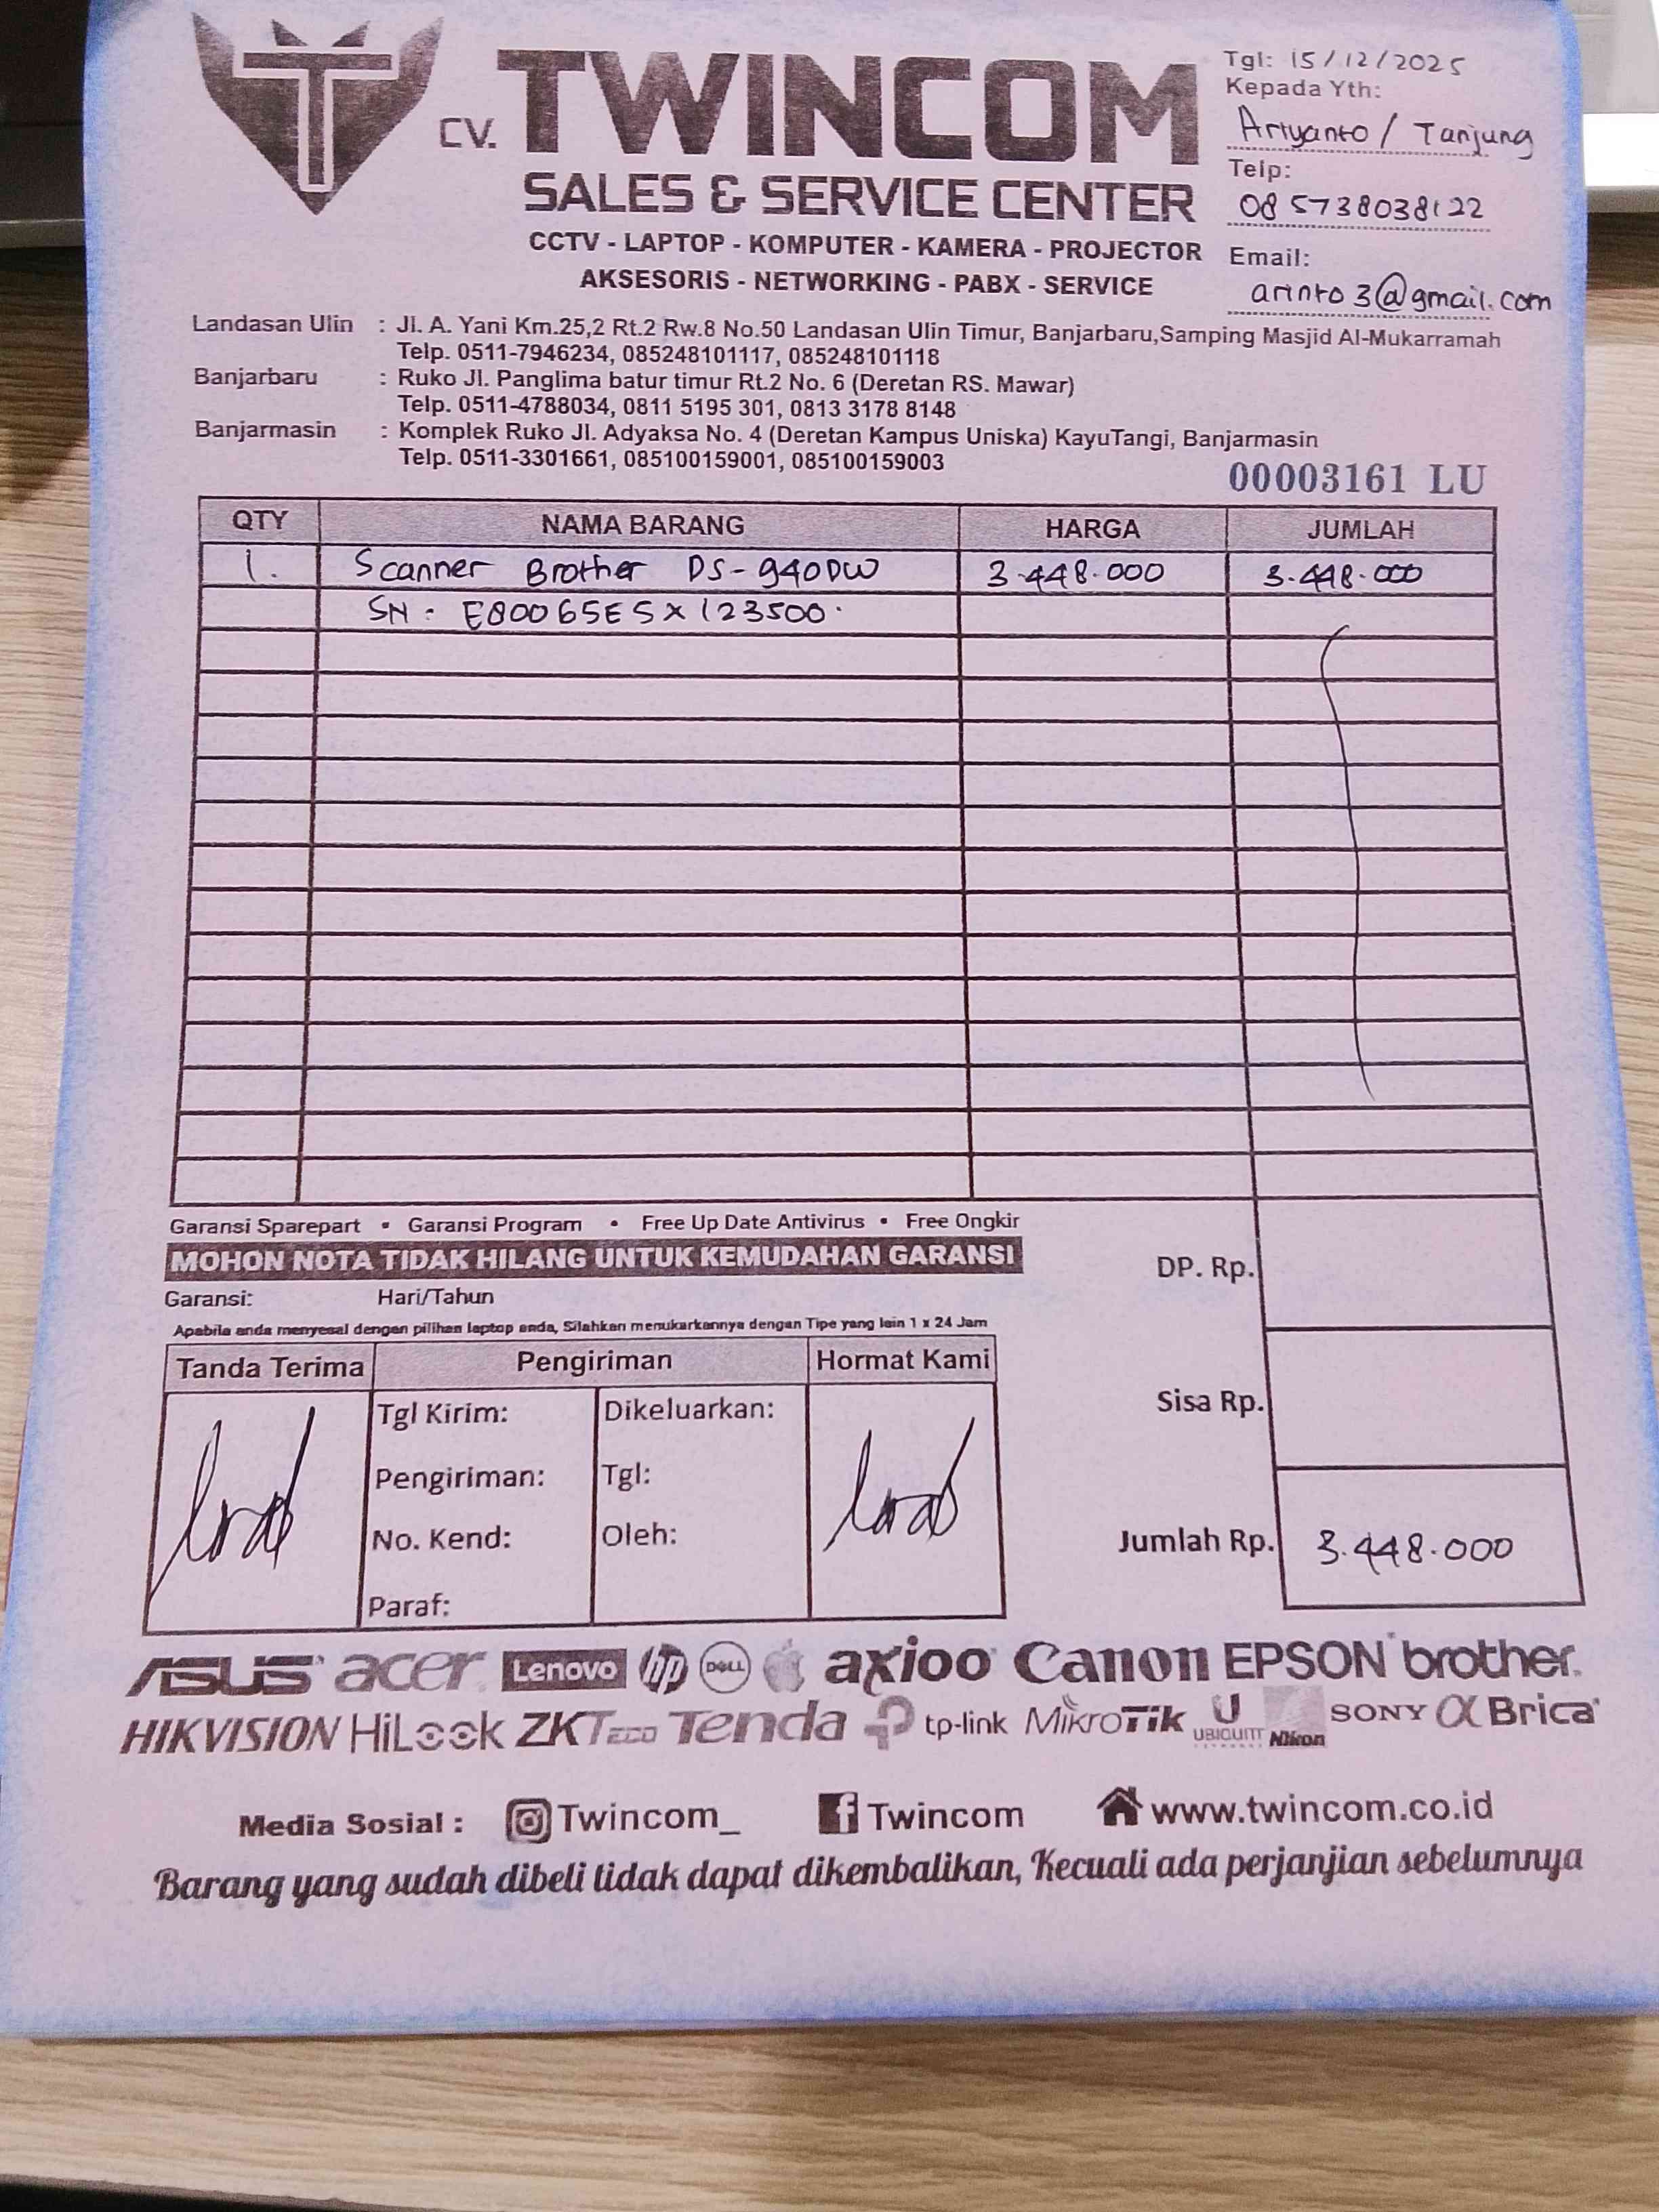 CV. TWINCOM
SALES & SERVICE CENTER
CCTV - LAPTOP - KOMPUTER - KAMERA - PROJECTOR
AKSESORIS - NETWORKING - PABX - SERVICE
Tgl: 15/12/2025
Kepada Yth:
Ariyanto / Tanjung
Telp:
085738038122
Email:
arinto3@gmail.com
Landasan Ulin : Jl. A. Yani Km.25,2 Rt.2 Rw.8 No.50 Landasan Ulin Timur, Banjarbaru,Samping Masjid Al-Mukarramah
Telp. 0511-7946234, 085248101117, 085248101118
Banjarbaru : Ruko Jl. Panglima batur timur Rt.2 No. 6 (Deretan RS. Mawar)
Telp. 0511-4788034, 0811 5195 301, 0813 3178 8148
Banjarmasin : Komplek Ruko Jl. Adyaksa No. 4 (Deretan Kampus Uniska) KayuTangi, Banjarmasin
Telp. 0511-3301661, 085100159001, 085100159003
00003161 LU
QTY NAMA BARANG HARGA JUMLAH
1. Scanner Brother DS-940DW 3.448.000 3.448.000
SN : E80065E5X123500.
Garansi Sparepart • Garansi Program • Free Up Date Antivirus • Free Ongkir
MOHON NOTA TIDAK HILANG UNTUK KEMUDAHAN GARANSI
Garansi: Hari/Tahun
Apabila anda menyesal dengan pilihan laptop anda, Silahkan menukarkannya dengan Tipe yang lain 1 x 24 Jam
DP. Rp.
Sisa Rp.
Jumlah Rp. 3.448.000
Tanda Terima Pengiriman Hormat Kami
Tgl Kirim: Dikeluarkan:
Pengiriman: Tgl:
No. Kend: Oleh:
Paraf:
ASUS acer Lenovo hp DELL axioo Canon EPSON brother
HIKVISION HiLook ZKTeco Tenda tp-link MikroTik UBIQUITI Nikon SONY α Brica
Media Sosial : Twincom_ Twincom www.twincom.co.id
Barang yang sudah dibeli tidak dapat dikembalikan, Kecuali ada perjanjian sebelumnya